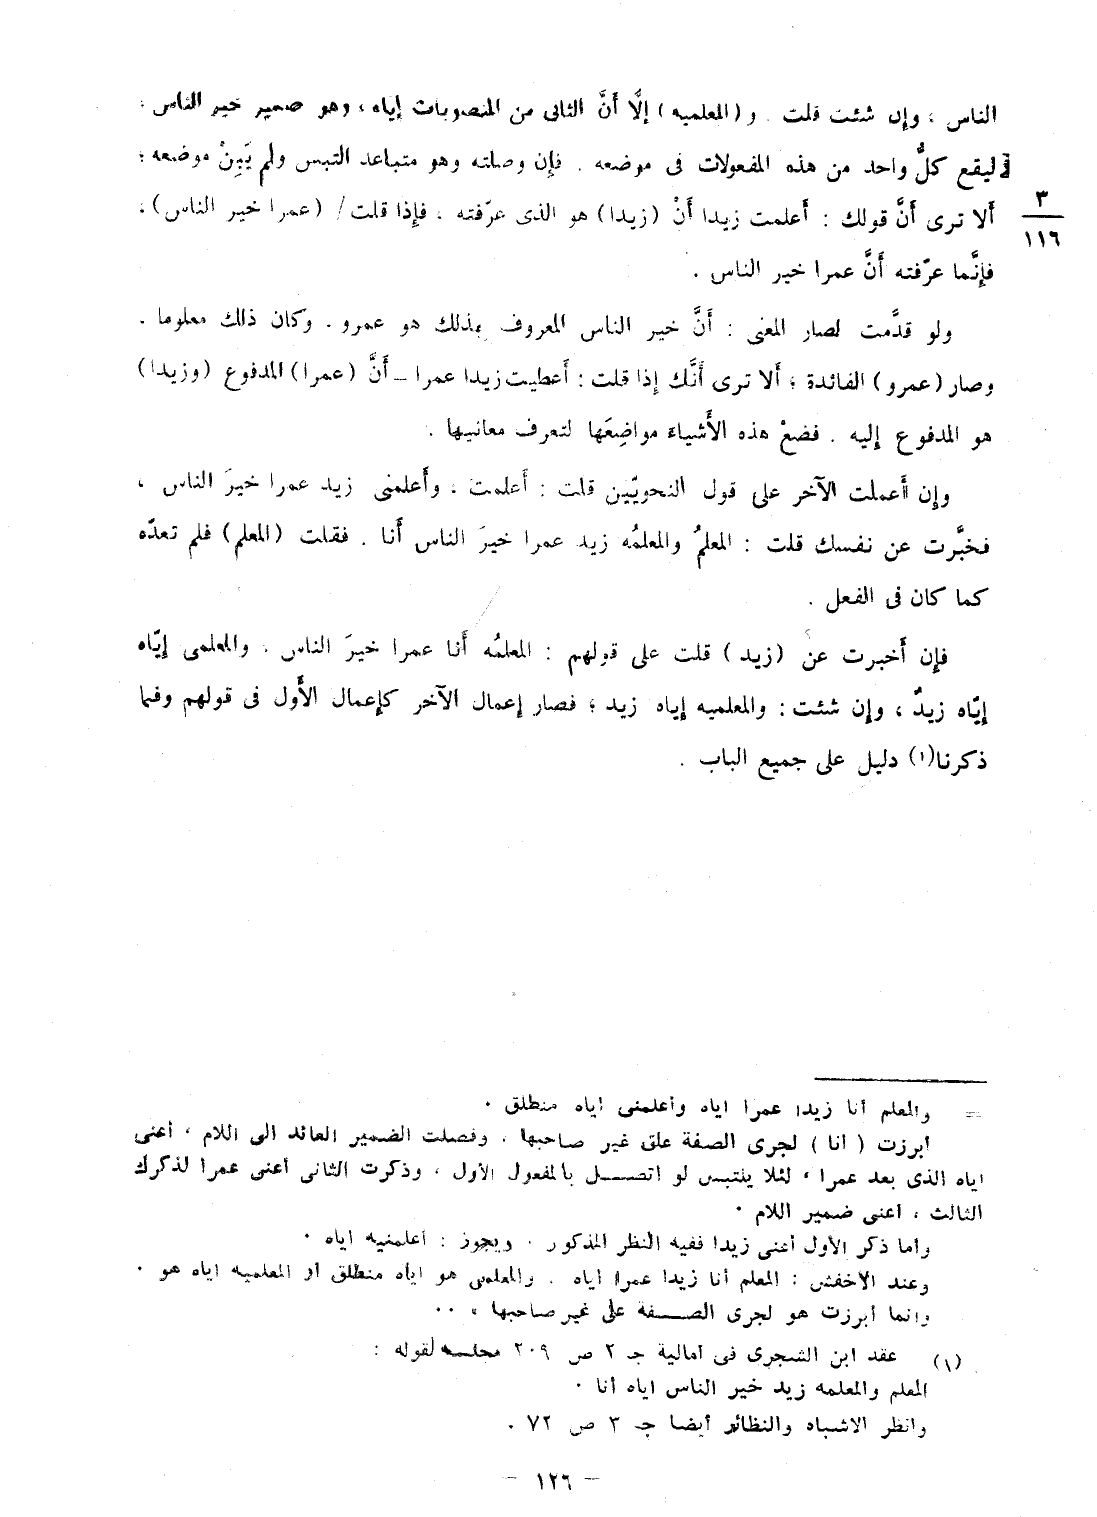 الناس ، وإن شئت قلت . و (المعلميه) إلَّا أنَّ الثانى من المنصوبات إياه ، وهو ضمير خير الناس ،
ليقع كلُّ واحد من هذه المفعولات فى موضعه . فإن وصلته وهو متباعد التبس ولم يَبِنْ موضعه ؛
ألا ترى أنَّ قولك : أعلمت زيدا أنْ (زيدا) هو الذى عرّفته ، فإذا قلت / (عمرا خير الناس) ،
٣
١١٦
فإنَّما عرّفته أنَّ عمرا خير الناس .
ولو قدَّمت لصار المعنى : أنَّ خير الناس المعروف بذلك هو عمرو . وكان ذلك معلوما .
وصار (عمرو) الفائدة ؛ ألا ترى أنَّك إذا قلت : أعطيت زيدا عمرا – أنَّ (عمرا) المدفوع (وزيدا)
هو المدفوع إليه . فضعْ هذه الأشياء مواضِعَها لتعرف معانيها .
وإن أعملت الآخر على قول النحويّين قلت : أعلمت ، وأعلمنى زيد عمرا خيرَ الناس ،
فخبَّرت عن نفسك قلت : المعلمُ والمعلمُه زيد عمرا خيرَ الناس أنا . فقلت (المعلم) فلم تعدّه
كما كان فى الفعل .
فإن أخبرت عن (زيد) قلت على قولهم : المعلمُه أنا عمرا خيرَ الناس ، والمعلمى إيّاه
إيّاه زيدٌ ، وإن شئت : والمعلميه إياه زيد ؛ فصار إعمال الآخر كإعمال الأول فى قولهم وفيما
ذكرنا(١) دليل على جميع الباب .
= والمعلم أنا زيدا عمرا اياه وأعلمنى اياه منطلق .
أبرزت ( أنا ) لجرى الصفة على غير صاحبها ، وفصلت الضمير العائد الى اللام ، أعنى
اياه الذى بعد عمرا ، لئلا يلتبس لو اتصل بالمفعول الأول ، وذكرت الثانى أعنى عمرا لذكرك
الثالث ، أعنى ضمير اللام .
وأما ذكر الأول أعنى زيدا ففيه النظر المذكور . ويجوز : أعلمنيه اياه .
وعند الأخفش : المعلم أنا زيدا عمرا اياه . والمعلمى هو اياه منطلق أو المعلميه اياه هو .
وانما أبرزت هو لجرى الصفة على غير صاحبها » ..
(١) عقد ابن الشجرى فى أمالية جـ ٢ ص ٢٠٩ مجلسه لقوله :
المعلم والمعلمه زيد خير الناس اياه أنا .
وانظر الاشباه والنظائر أيضا جـ ٣ ص ٧٢ .
– ١٢٦ –